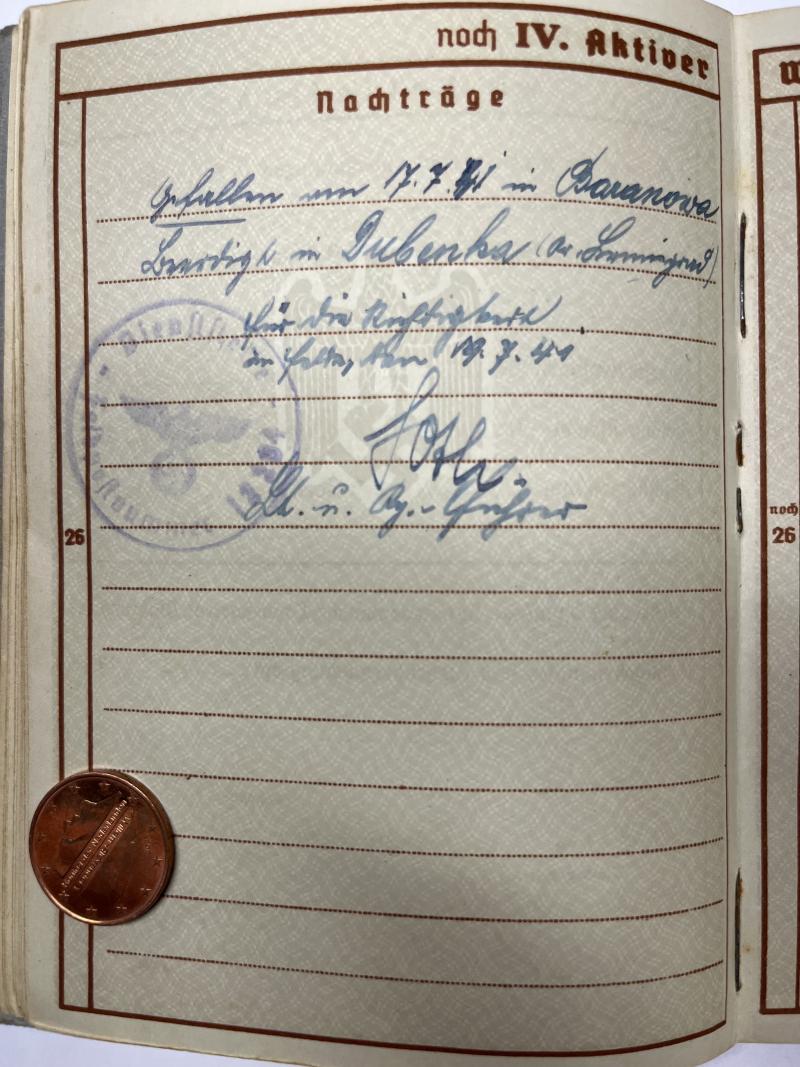 noch IV. Aktiver
Nachträge
Gefallen am 17. 7. 41 in Baranowa
Beerdigt in Dubenka (Kr. Leningrad)
für die Richtigkeit
im Felde, den 19. 7. 41
Lt. u. Kp.-Führer
Dienststelle
26
noch
26